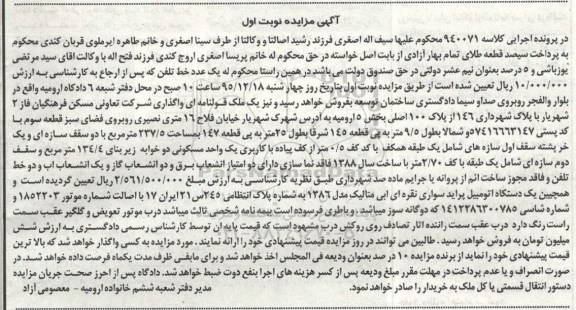 آگهی مزایده نوبت اول
در پرونده اجرایی کلاسه ۹۴۰۰۷۱ محکوم علیها سیف اله اصغری فرزند رشید اصالتا و وکالتا از طرف سینا اصغری و خانم طاهره ایرملوی قربان کندی محکوم
به پرداخت سیصد قطعه طلای تمام بهار آزادی از بابت اصل خواسته در حق محکوم له خانم پریسا اصغری اروج کندی فرزند فتح اله با وکالت اقای سید مرتضی
یوزباشی و ۵ درصد بعنوان نیم عشر دولتی در حق صندوق دولت می باشد در همین راستا محکوم له یک عدد خط تلفن که پس از ارجاع به کارشناسی به ارزش
۱۰/۰۰۰/۰۰۰ ریال تعیین شده است از طریق مزایده نوبت اول بتاریخ روز چهار شنبه ۹۵/۱۲/۱۸ ساعت ۱۰ صبح در محل دفتر شعبه ۶ دادگاه ارومیه واقع در
بلوار والفجر روبروی صداو سیما دادگستری ساختمان توسعه بفروش خواهد رسید و نیز یک ملک قولنامه ای واگذاری شرکت تعاونی مسکن فرهنگیان فاز ۲
شهریار با پلاک شهرداری ۱۴۶ از پلاک ۱۰۰ اصلی بخش ۵ ارومیه به آدرس شهرک شهریار خیابان فلاح ۱۶ متری نصیری روبروی فضای سبز قطعه سوم با
کد پستی ۵۷۴۱۶۶۶۳۱۴۷ و شمالا بطول ۹/۵ متر به قطعه ۱۴۵ شرقا بطول ۲۵ متر به پی قطعه ۱۴۷ به مساحت ۲۳۷/۵ مترمربع با دو سقف سازه ای و یک
خر پشته سقف اول سازه های شامل یک طبقه همکف با کد کف ۰/۵ متر از کف پیاده با کاربری یک واحد مسکونی دو خوابه زیر بنای ۱۳۴/۴ متر مربع و سقف
دوم سازه ای شامل یک طبقه با کف ۲/۷۰متر با ساخت سال ۱۳۸۸ فاقد نما سازی دارای دو امتیاز انشعاب برق و دو انشعاب گاز و یک انشعاب اب و دو خط
تلفن و فاقد مجوز ساخت اثم از پروانه یا جرایم ماده صد شهرداری طبق نظریه کارشناسی به ارزش مبلغ ۲/۵۶۱/۵۰۰/۰۰۰ ریال تعیین گردیده است و
همچنین یک دستگاه اتومبیل پراید سواری نقره ای ابی متالیک مدل ۱۳۸۶ به شماره پلاک انتظامی ۲۴۵س۳۱ ایران ۱۷ با اصالت شماره موتور ۱۸۵۲۲۰۳ و
شماره شاسی ۱۴۱۲۲۸۶۳۰۰۷۸۵ که دوگانه سوز میباشد و باطری فرسوده است بیمه نامه شخصی ثالث میباشد درب موتور تعویض و گلگیر عقب سمت
راست رنگ دارد درب عقب سمت راننده اثار تصادف روی روکش درب مشهود است که قیمت پایه ان توسط کارشناس رسمی دادگستری به ارزش شش
میلیون تومان به فروش خواهد رسید. طالبین می توانند در روز مزایده قیمت پیشنهادی خود را ارائه نمایند. مورد مزایده به کسی واگذار خواهد شد که بالا ترین
قیمت پیشنهادی خود را نماید از برنده مزایده ۱۰ در صد بعنوان ودیعه فی المجلس اخذ خواهد شد و برای مابقی ظرف مدت یکماه فرصت داده خواهد شد. در
صورت انصراف و یا عدم پرداخت در مهلت مقرر مبلغ ودیعه پس از کسر هزینه های اجرا بنفع دوت ضبط خواهد شد. دادگاه پس از احرز صحت جریان مزایده
دستور انتقال قسمتی یا کل ملک به خریدار را صادر خواهد نمود.
مدیر دفتر شعبه ششم خانواده ارومیه - معصومی آزاد